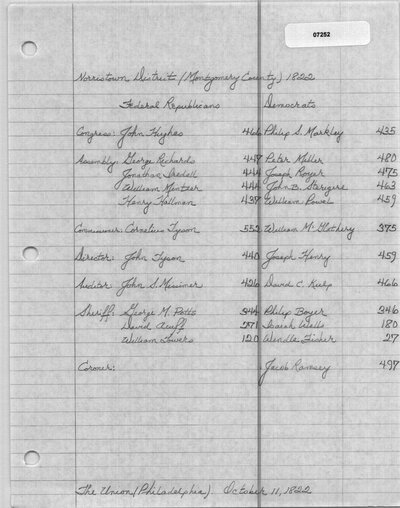 07252
Norristown District (Montgomery County) 1822
Federal Republicans Democrats
Congress: John Hughes 466 Philip S. Markley 435
Assembly: George Richards 447 Peter Miller 480
Jonathan Iredell 444 Joseph Royer 475
William Mentzer 444 John B. Sterigere 463
Henry Hallman 437 William Powel 459
Commissioner: Cornelius Tyson 552 William McGlathery 375
Director: John Tyson 440 Joseph Henry 459
Auditor: John S. Missimer 426 David C. Kulp 466
Sheriff: George M. Potts 344 Philip Boyer 346
David Acuff 271 Isaiah Wells 180
William Powers 120 Wendle Fisher 27
Coroner: Jacob Ramsey 497
The Union (Philadelphia). October 11, 1822